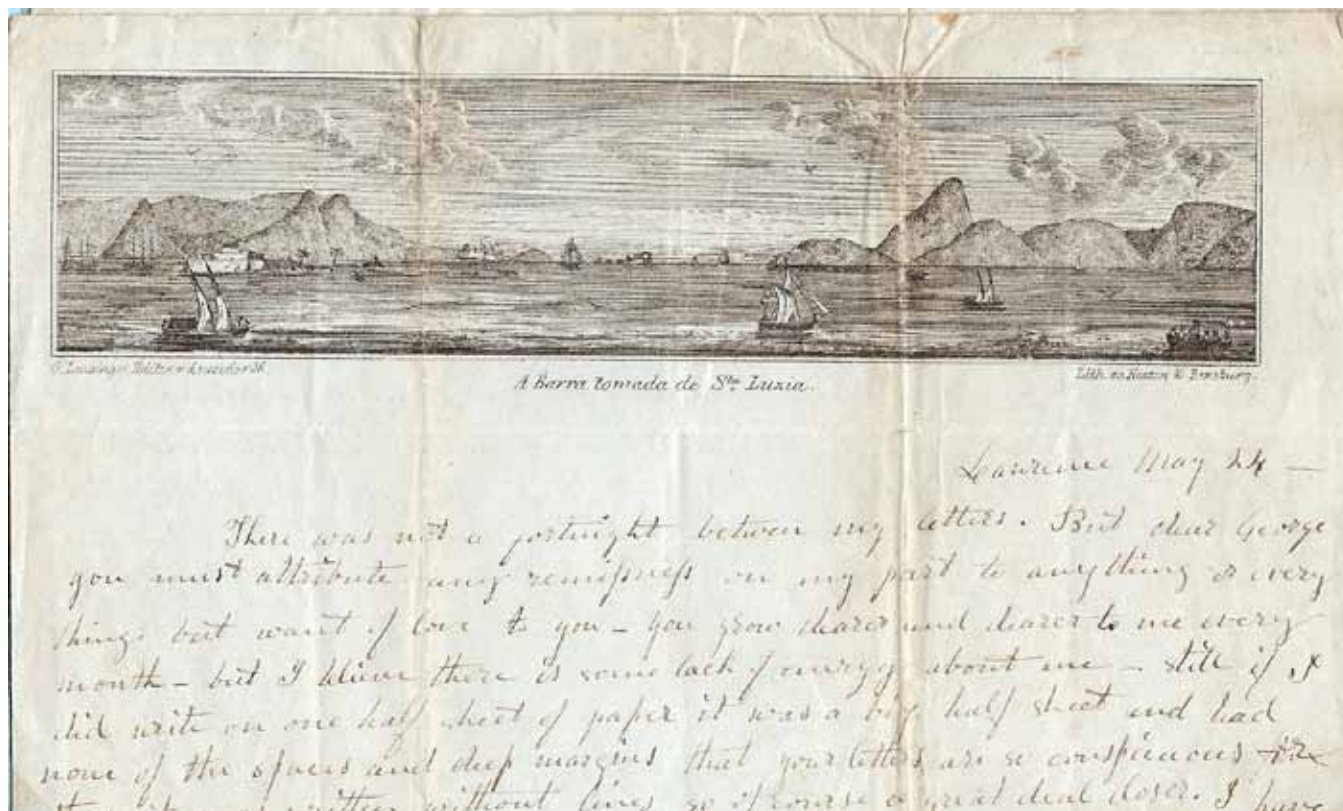 A Barra tomada de Sta. Luzia.
Lith. de Heaton & Rensburg.
Lawrence May 24 —
There was not a fortnight between my letters. But dear George
you must attribute any remissness on my part to anything & every
thing but want of love to you – you grow dearer and dearer to me every
month – but I believe there is some lack of energy about me – still if I
did write on one half sheet of paper it was a big half sheet and had
none of the spaces and deep margins that your letters are so conspicuous
written without lines so of course a great deal closer. I have